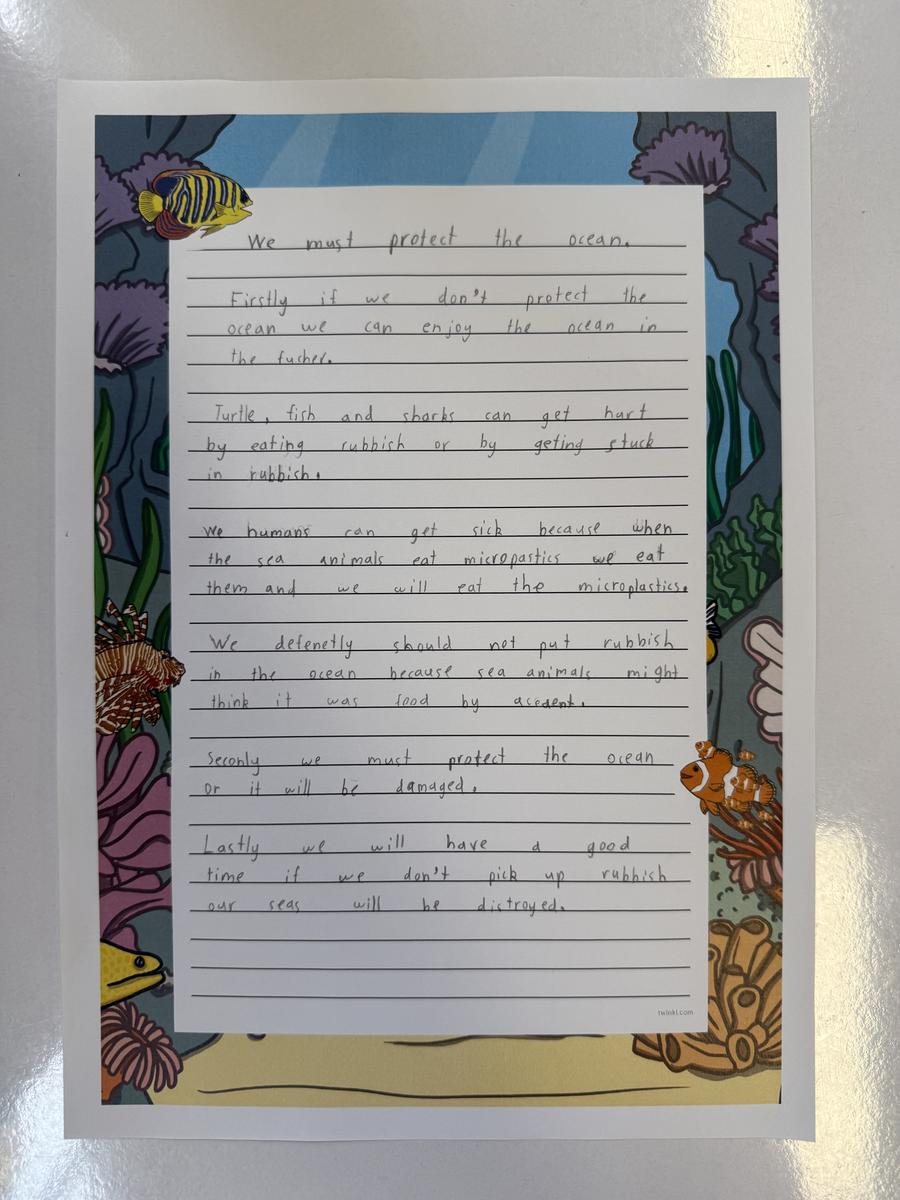 We must protect the ocean.
Firstly if we don't protect the
ocean we can enjoy the ocean in
the fucher.
Turtle, fish and sharks can get hurt
by eating rubbish or by geting stuck
in rubbish.
We humans can get sick because when
the sea animals eat micropastics we eat
them and we will eat the microplastics.
We defenetly should not put rubbish
in the ocean because sea animals might
think it was food by acedent.
Seconly we must protect the ocean
or it will be damaged.
Lastly we will have a good
time if we don't pick up rubbish
our seas will be distroyed.
twinkl.com